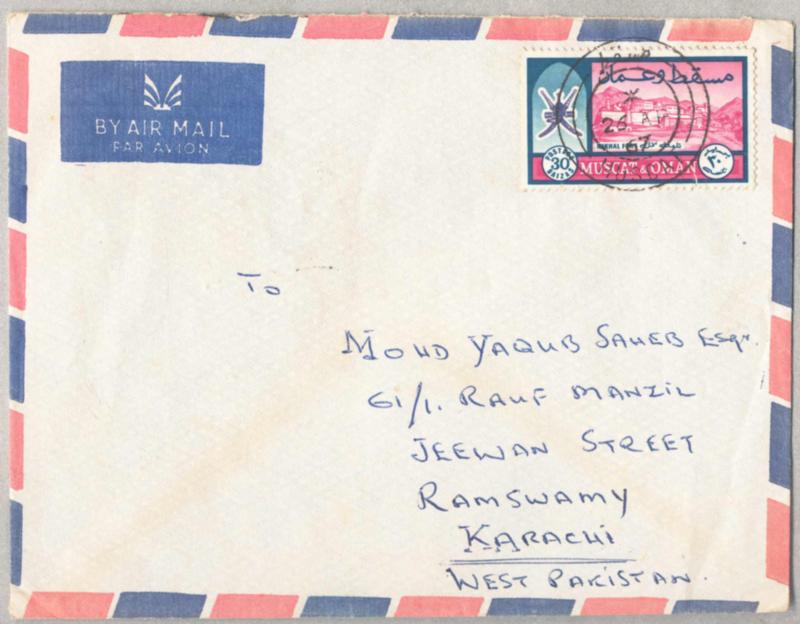 BY AIR MAIL
PAR AVION
مسقط وعمان
26 AP
67
NAKHAL FORT
POSTAGE
30
BAIZAS
MUSCAT & OMAN
٣٠
To
MOHD YAQUB SAHEB ESQr.
61/1. RAUF MANZIL
JEEWAN STREET
RAMSWAMY
KARACHI
WEST PAKISTAN.